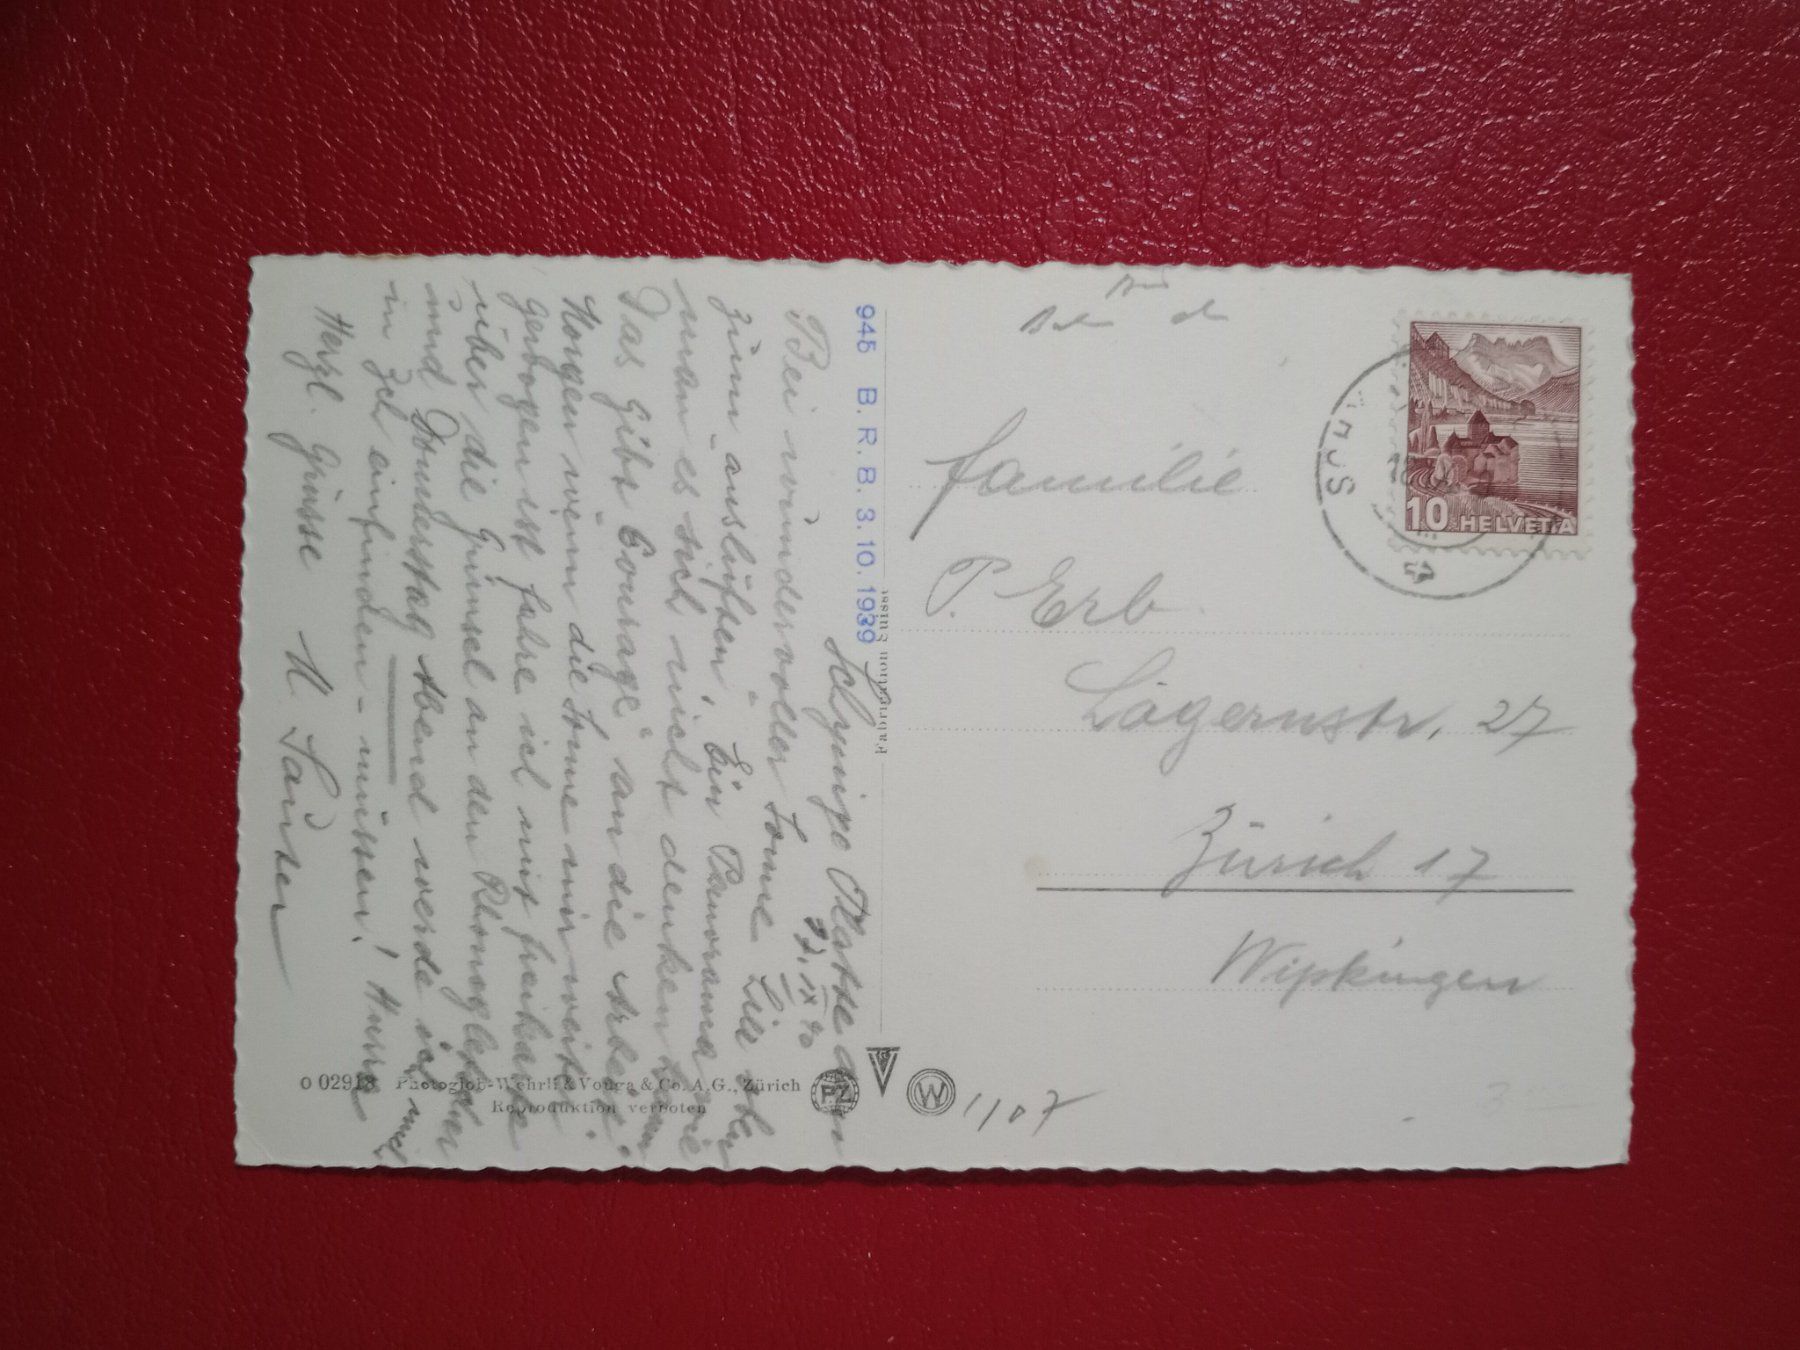 Schynige Platte den
22. IX 40
Bei wundervoller Sonne Eis aber
zum "auslüften". Ein Panorama wie
man es sich nicht denken kann
Das gibt "Courage" an die Arbeit.
Morgen wenn die Sonne mir weiter
gewogen ist fahre ich mit Freikarte
über die Grimsel an den Rhonegletscher
und Donnerstag Abend werde ich mich
in Zch einfinden - müssen! Hurra
Herzl. Grüsse
945 B. R. B. 3. 10. 1939
Fabrication Suisse
O 02918 Photoglob-Wehrli & Vouga & Co. A.G., Zürich
Reproduktion verboten
PZ
W
1107
Familie
P. Erb
Lägernstr. 27
Zürich 17
Wipkingen
10 HELVETIA
3 -